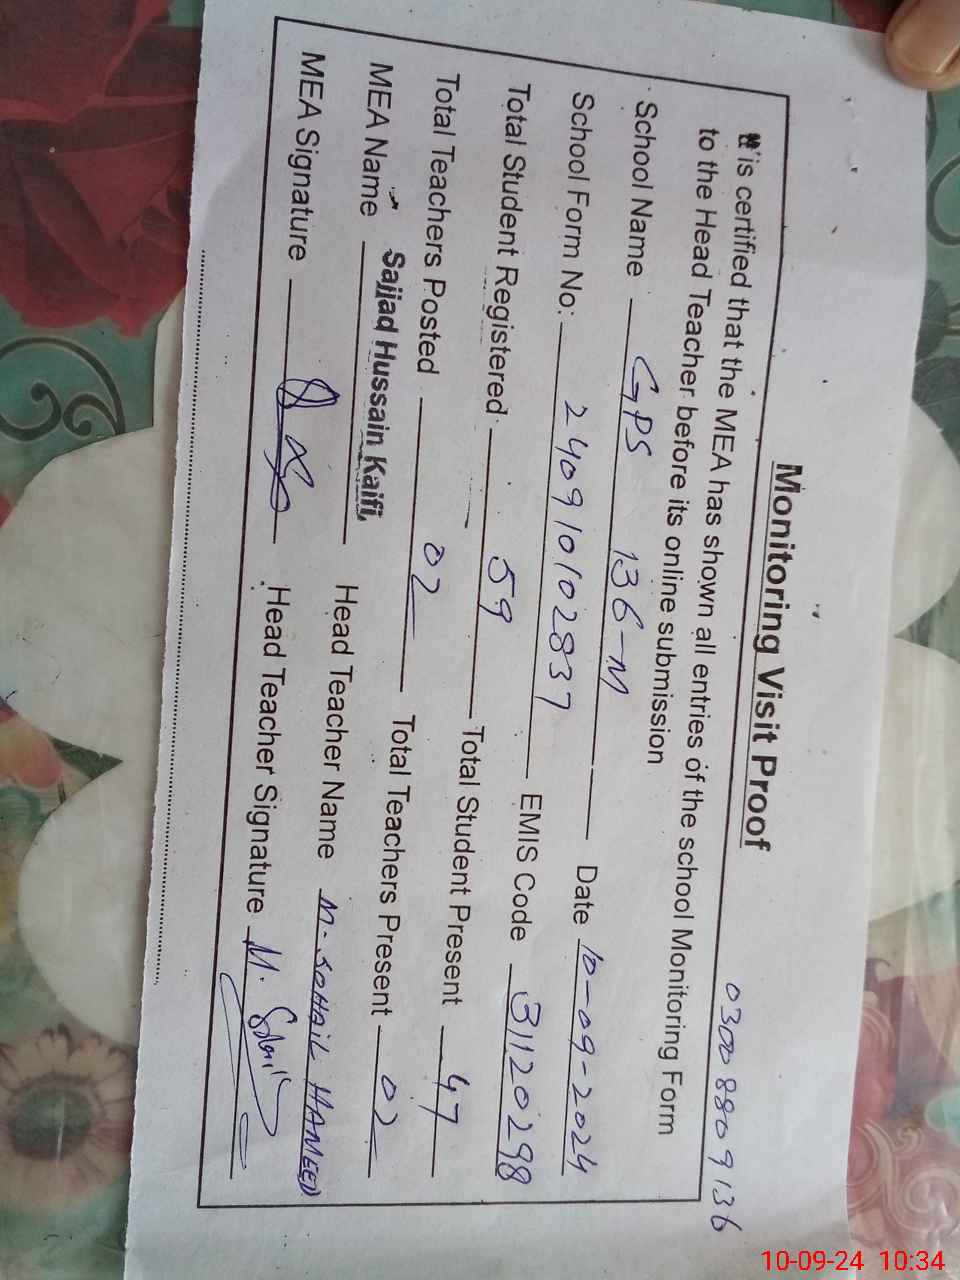 Monitoring Visit Proof
0300 8809136
It is certified that the MEA has shown all entries of the school Monitoring Form
to the Head Teacher before its online submission
School Name GPS 136-M Date 10-09-2024
School Form No: 240910102837 EMIS Code 31120298
Total Student Registered 59 Total Student Present 47
Total Teachers Posted 02 Total Teachers Present 02
MEA Name Sajjad Hussain Kaifi, Head Teacher Name M. SOHAIL HAMEED
MEA Signature Head Teacher Signature M. Sohail
10-09-24 10:34